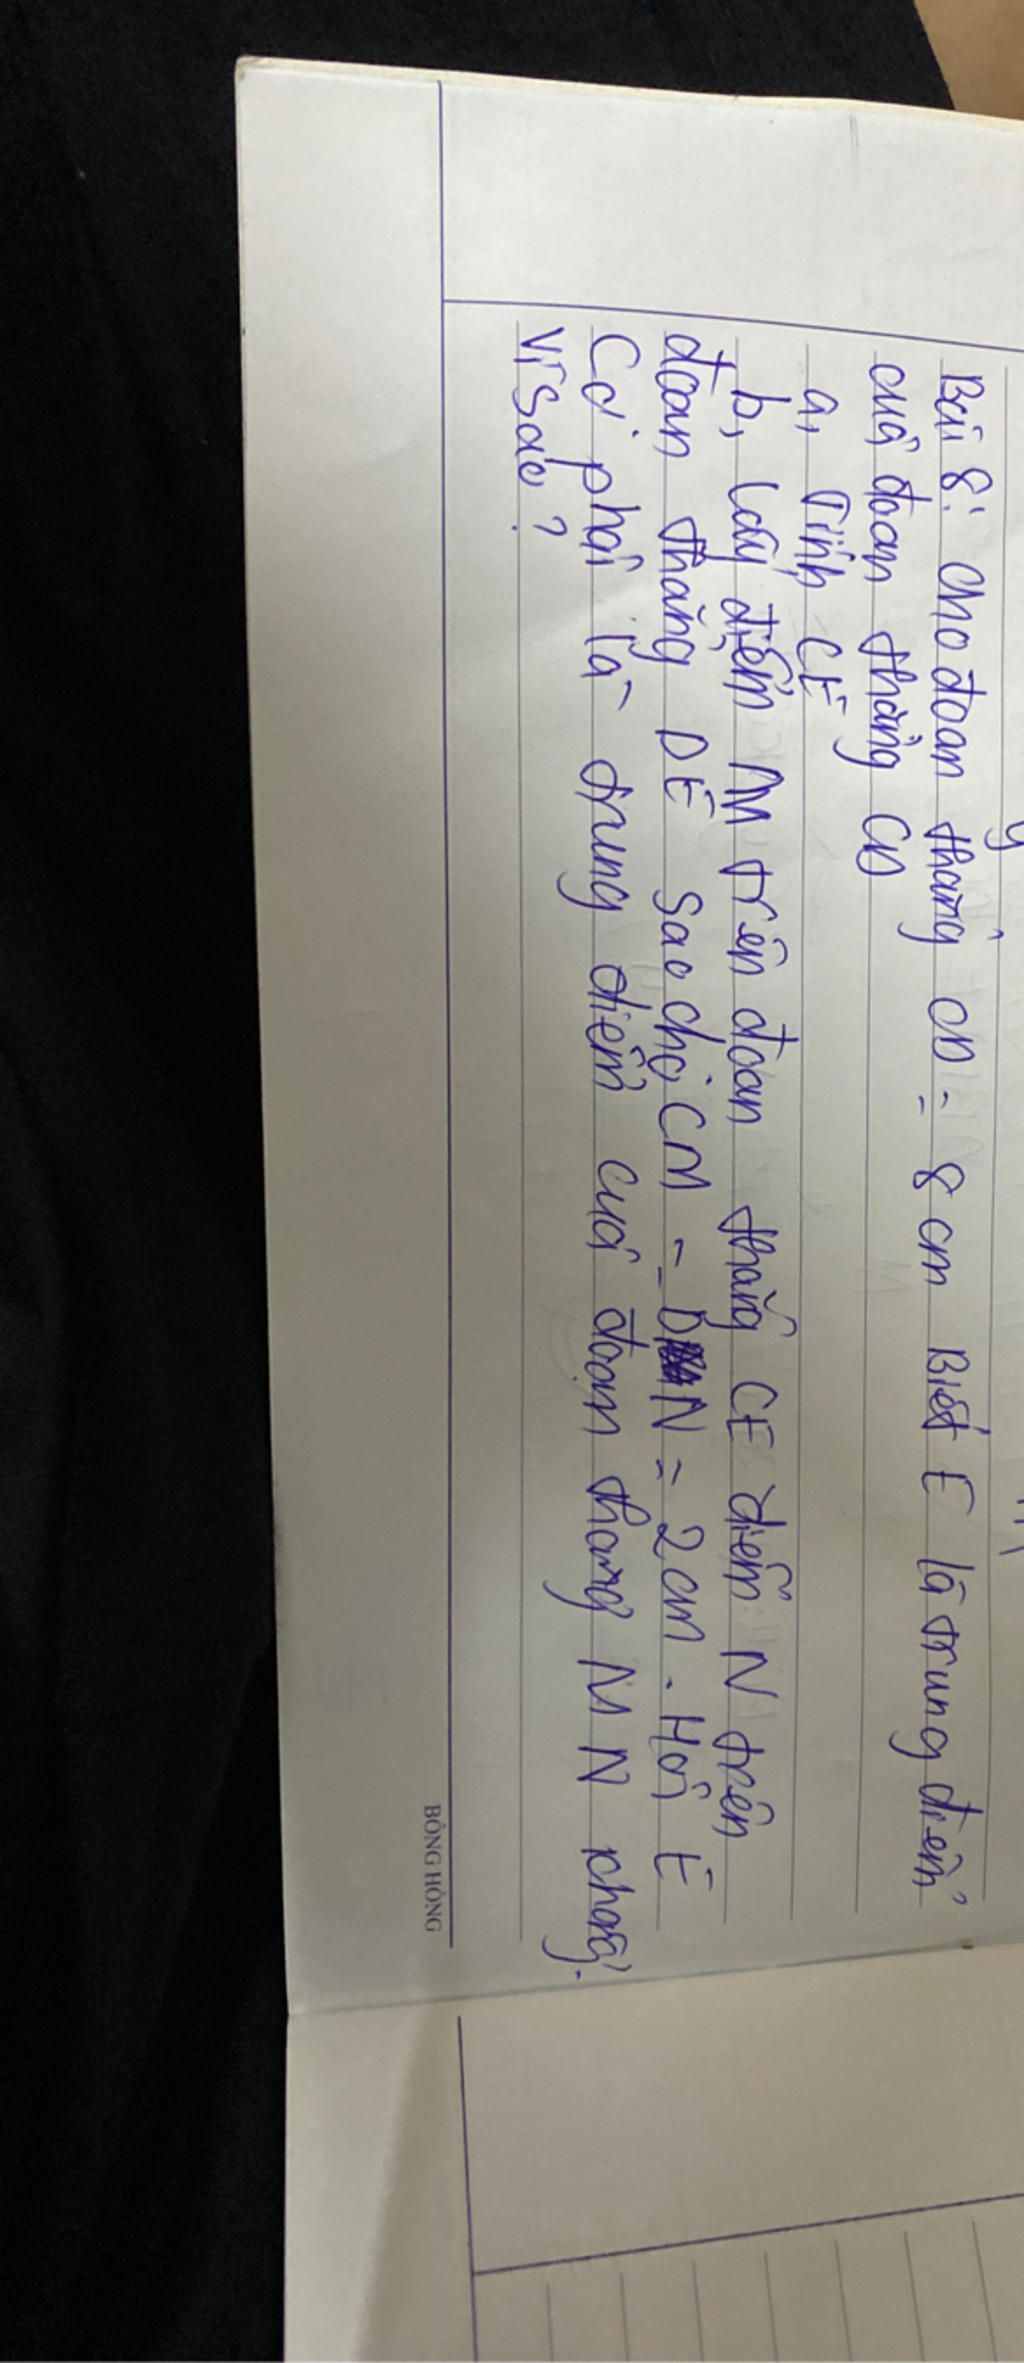 Bài 8: Cho đoạn thẳng CD = 8 cm Biết E là trung điểm
của đoạn thẳng CD
a, Tính CE
b, Lấy điểm M trên đoạn thẳng CE điểm N trên
đoạn thẳng DE sao cho CM = DN = 2 cm. Hỏi E
Có phải là trung điểm của đoạn thẳng MN không.
Vì sao?
BÔNG HỒNG